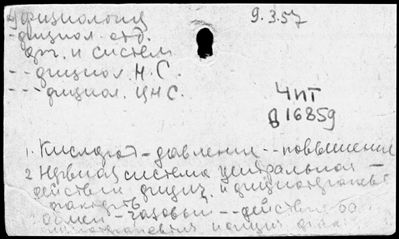 9) физиология
9.3.57
- физиол. отд.
орг. и систем
- - - физиол. Н.С.
- - - - физиол. ЦНС.
ЧпТ
В 16859
1. Кислород - давление - - повышение
2 Нервная система центральная -
действии физич. и физиотерапевт
факторов
3 Обмен - газовый - - действие ба